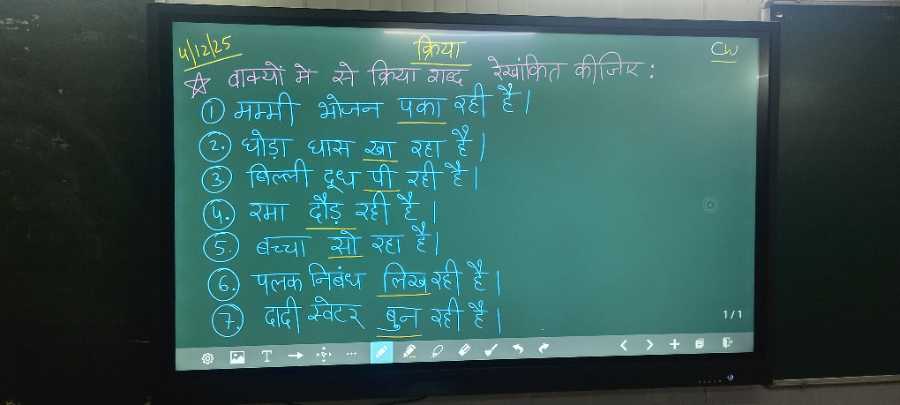 4/12/25 क्रिया CW
☆ वाक्यों में से क्रिया शब्द रेखांकित कीजिए :
① मम्मी भोजन पका रही है।
②. घोड़ा घास खा रहा है।
③ बिल्ली दूध पी रही है।
④. रमा दौड़ रही है।
⑤. बच्चा सो रहा है।
⑥. पलक निबंध लिख रही है।
⑦. दादी स्वेटर बुन रही है।
1/1
T